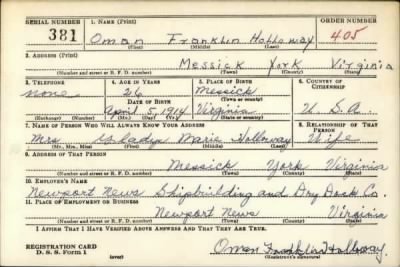 SERIAL NUMBER 1. NAME (Print) ORDER NUMBER
381 Oman Franklin Holloway 405
(First) (Middle) (Last)
2. ADDRESS (Print)
Messick York Virginia
(Number and street or R. F. D. number) (Town) (County) (State)
3. TELEPHONE 4. AGE IN YEARS 5. PLACE OF BIRTH 6. COUNTRY OF CITIZENSHIP
none 26 Messick
DATE OF BIRTH (Town or county)
April 5, 1914 Virginia U. S. A.
(Exchange) (Number) (Mo.) (Day) (Yr.) (State or country)
7. NAME OF PERSON WHO WILL ALWAYS KNOW YOUR ADDRESS 8. RELATIONSHIP OF THAT PERSON
Mrs Gladys Marie Holloway Wife
(Mr., Mrs., Miss) (First) (Middle) (Last)
9. ADDRESS OF THAT PERSON
Messick York Virginia
(Number and street or R. F. D. number) (Town) (County) (State)
10. EMPLOYER'S NAME
Newport News Shipbuilding and Dry Dock Co.
11. PLACE OF EMPLOYMENT OR BUSINESS
Newport News Virginia
(Number and street or R. F. D. number) (Town) (County) (State)
I AFFIRM THAT I HAVE VERIFIED ABOVE ANSWERS AND THAT THEY ARE TRUE.
REGISTRATION CARD
D. S. S. Form 1 (over) Oman Franklin Holloway
(Registrant's signature)